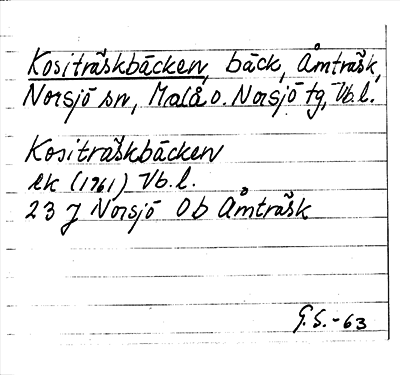 Kositräskbäcken, bäck, Åmträsk,
Norsjö sn, Malå o. Norsjö tg, Vb.l.
Kositräskbäcken
ek (1961) Vb.l.
23 J Norsjö Ob Åmträsk
G.S.-63